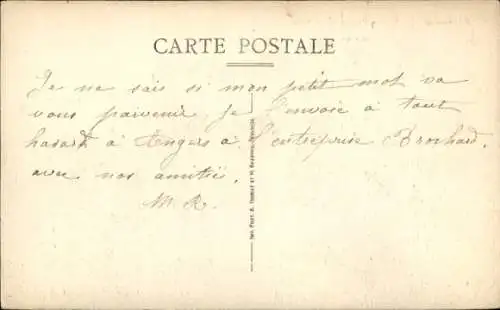 CARTE POSTALE
Je ne sais si mon petit mot va
vous parvenir, Je l'envoie à tout
hasard à Angers à l'entreprise Brochard.
avec nos amitiés.
M. R.